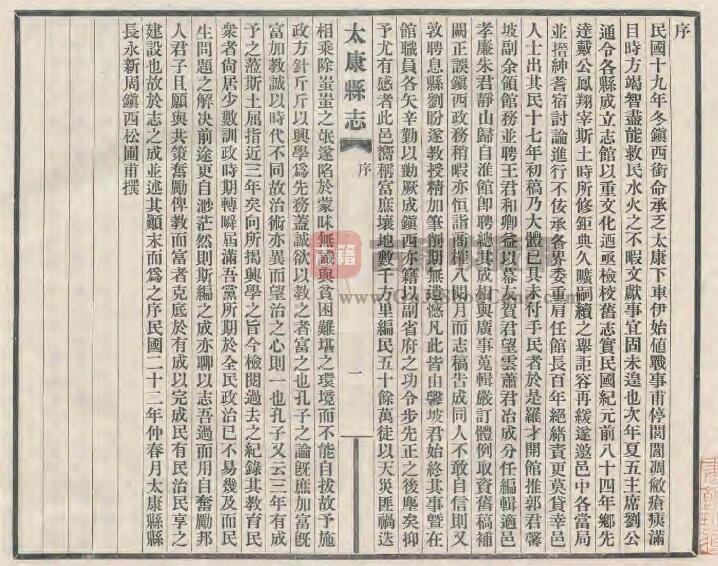 序
民國十九年冬鎭西銜命承乏太康下車伊始値戰事甫停閭閻凋敝瘡痍滿
目時方竭智盡能救民水火之不暇文獻事宜固未遑也次年夏五主席劉公
通令各縣成立志館以重文化迺亟檢校舊志實民國紀元前八十四年鄉先
達戴公鳳翔宰斯土時所修鉅典久曠嗣續之舉詎容再緩遂邀邑中各當局
並搢紳耆宿討論進行不佞承各界委重肩任館長百年絕緒責更莫貸幸邑
人士出其民十七年初稿乃大體已具未付手民者於是羅才開館推郭君馨
坡副余領館務並聘王君和卿益以幕友賀君望雲蕭君冶成分任編輯適邑
孝廉朱君靜山歸自淮館卽聘總其成相與廣事蒐輯嚴訂體例取資舊稿補
闕正誤鎭西政務稍暇亦恒詣商榷八閱月而志稿告成同人不敢自信則又
敦聘息縣劉盼遂教授精加筆削期無遺憾凡此皆由馨坡君始終其事曁在
館職員各矢辛勤以勷厥成鎭西亦藉以副省府之功令步先正之後塵矣抑
予尤有感者此邑嚮稱富庶壤地數千方里編民五十餘萬徒以天災匪禍迭
太康縣志
序
一
相乘除蚩蚩之氓遂陷於蒙昧無識與貧困難堪之環境而不能自拔故予施
政方針斤斤以興學爲先務蓋誠欲以教之者富之也孔子之論旣庶加富旣
富加教誠以時代不同故治術亦異而望治之心則一也孔子又云三年有成
予之蒞斯土屈指近三年矣向所揭興學之旨今檢閱過去之紀錄其教育民
衆者尙居少數訓政時期轉瞬屆滿吾黨所期於全民政治已不易幾及而民
生問題之解決前途更自渺茫然則斯編之成亦聊以志吾過而用自奮勵邦
人君子且願與共策奮勵俾教而富者克底於有成以完成民有民治民享之
建設也故於志之成並述其顚末而爲之序民國二十二年仲春月太康縣縣
長永新周鎭西松圃甫撰